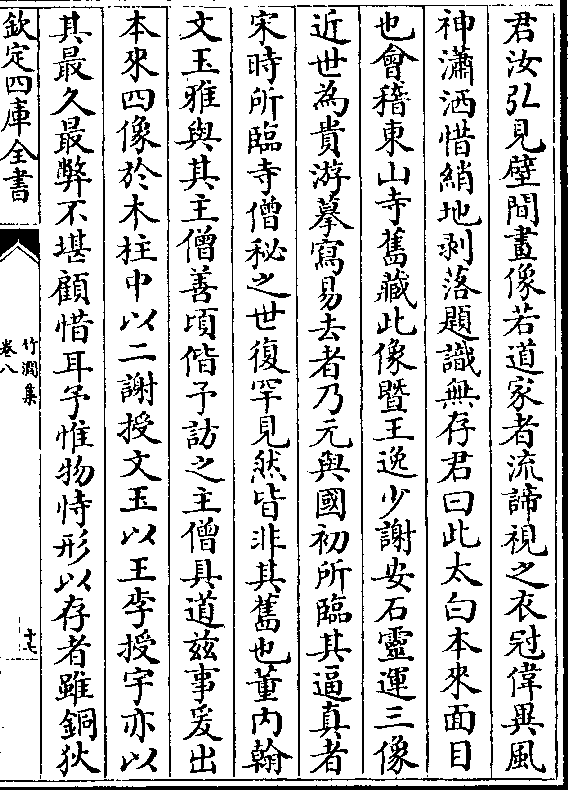 君汝弘見壁間畫像若道家者流諦視之衣冠偉異風
神瀟洒惜綃地剥落題識無存君曰此太白本來面目
也會稽東山寺舊藏此像暨王逸少謝安石靈運三像
近世為貴游摹寫易去者乃元與國初所臨其逼真者
宋時所臨寺僧秘之世復罕見然皆非其舊也董内翰
文玉雅與其主僧善頃偕予訪之主僧具道兹事爰出
本來四像於木柱中以二謝授文玉以王李授宇亦以
其最久最弊不堪顧惜耳予惟物恃形以存者雖銅狄
欽定四庫全書
竹澗集
卷八
十七